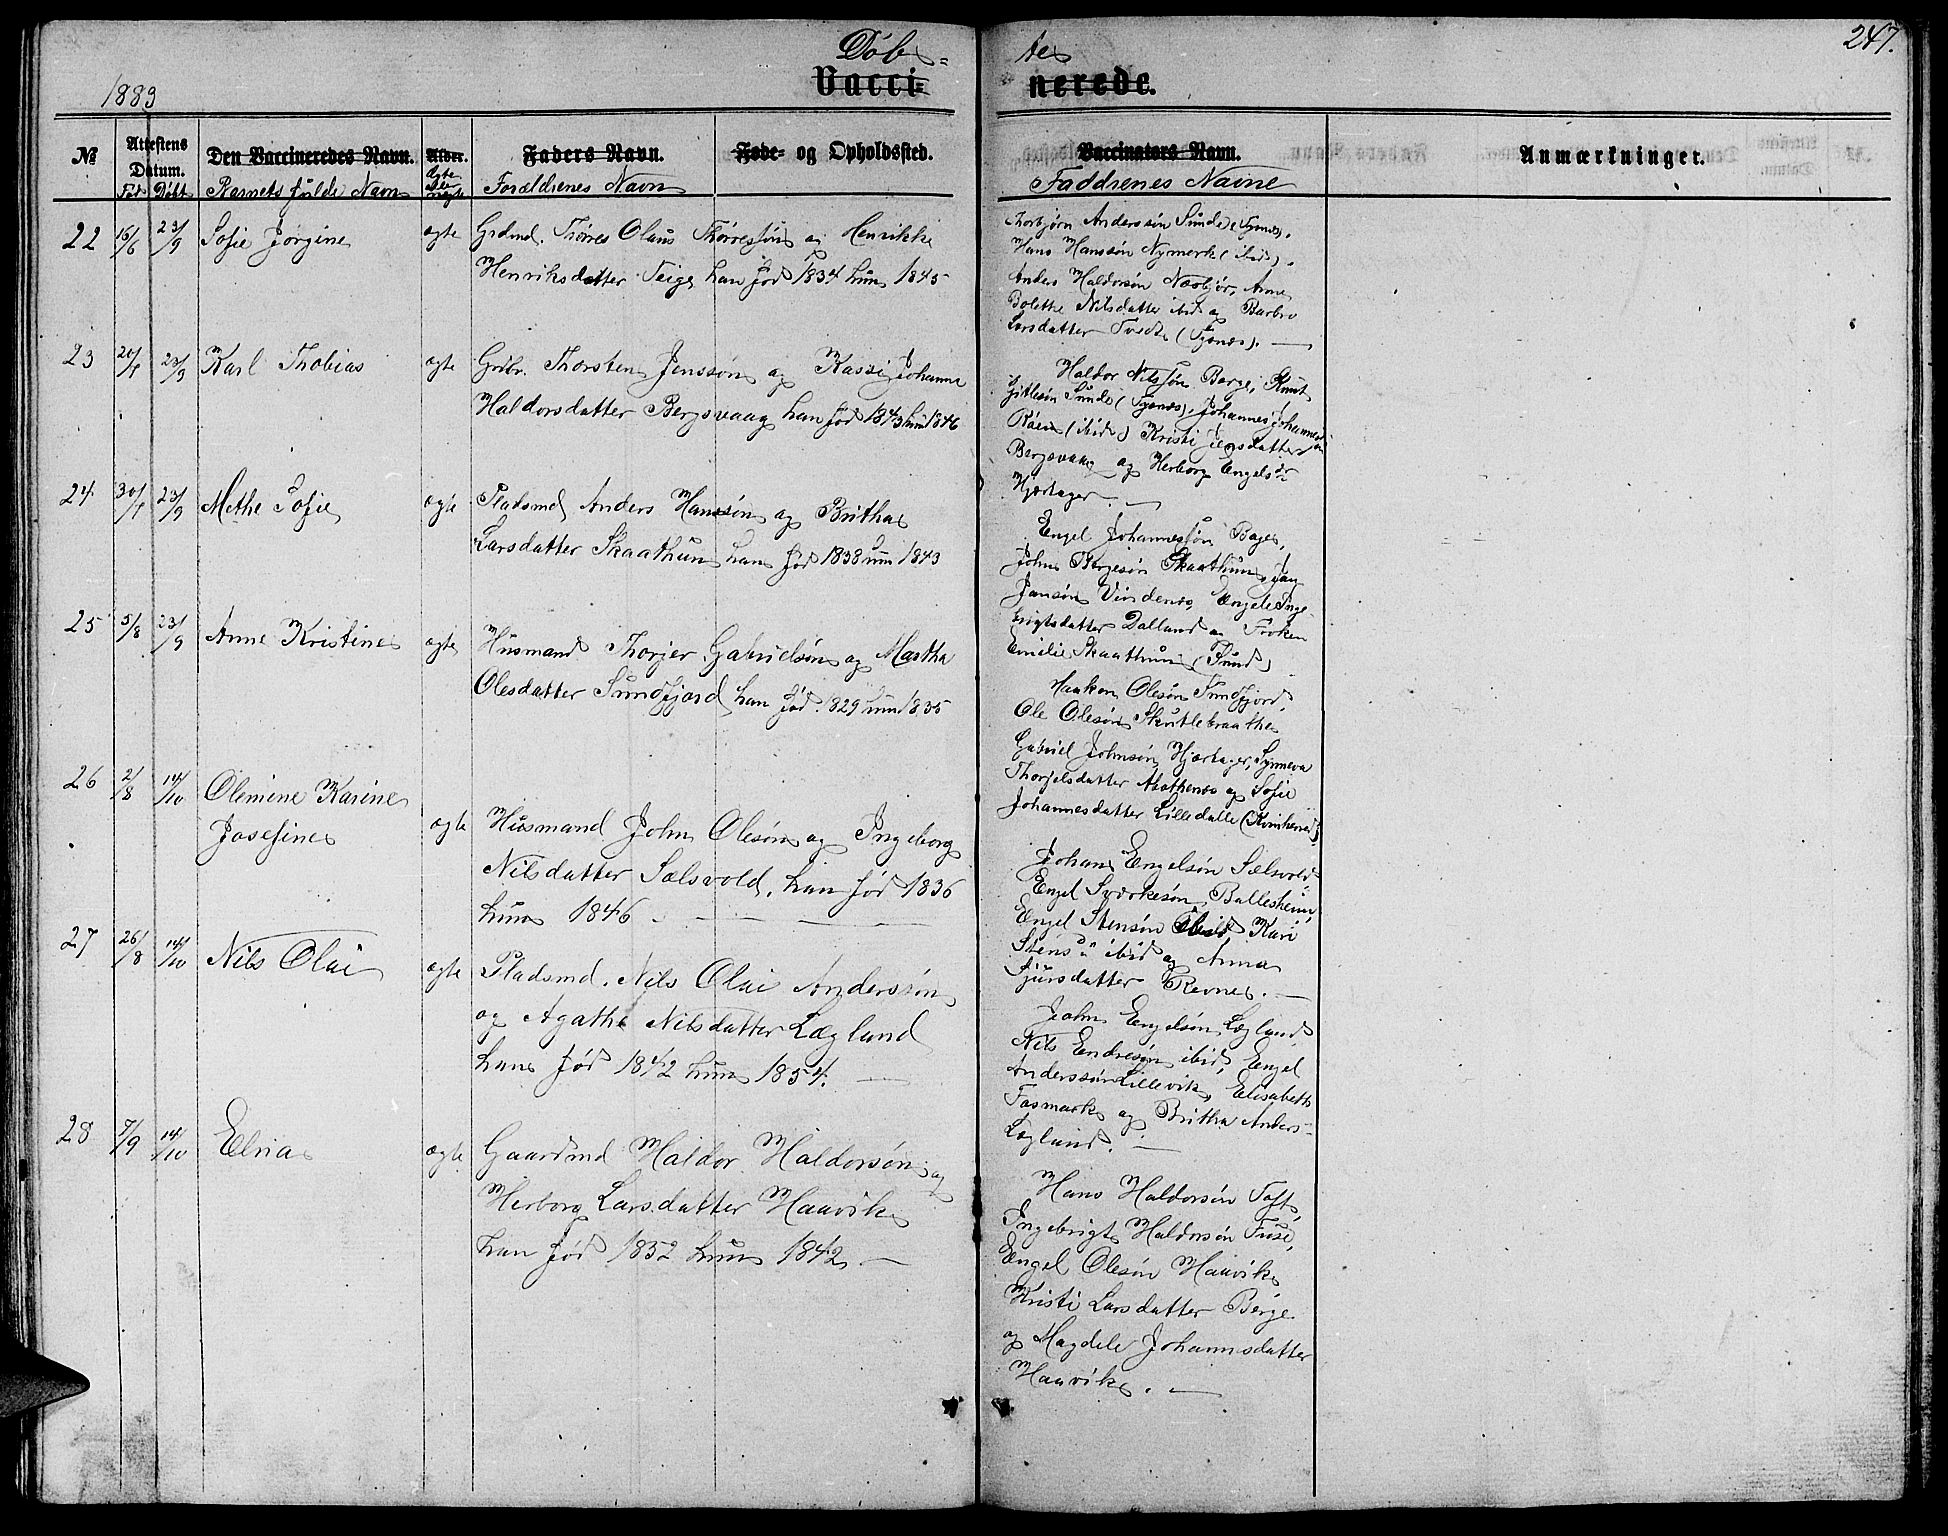 247.
Döbe=
tes
Vacci=
nerede.
1883
№
Attestens
Datum.
Fød Døbt
Den Vaccineredes Navn.
Barnets fulde Navn
Alder.
ægte
eller
uægte
Faders Navn.
Forældrenes Navn
Føde- og Opholdssted.
Vaccinators Navn.
Faddrenes Navne
Anmærkninger.
22 16/6 23/9 Sofie Jørgine ægte Grdmd. Thøres Olaus Thørresøn og Henrikke
Henriksdatter Teige han fød 1834 hun 1845
Thorbjørn Anderssøn Sunde (Tysnes),
Hans Hanssøn Nymerk (ibid),
Anders Haldorsøn Næsbjør, Anne
Bolethe Nilsdatter ibid og Barbro
Larsdatter Tvedt (Tysnes). —
23 20/7 23/9 Karl Thobias ægte Grdbr. Thorsten Jenssøn og Kassi Johanne
Haldorsdatter Bergsvaag han fød 1843 hun 1846
Haldor Nilssøn Berge, Knut
Gitlesøn Sunde (Tysnes), Johannes Johannessøn
Røen (ibid) Kristi Jensdatter
Bergsvaag og Herborg Engelsdr
Hjertager. —
24 30/7 23/9 Methe Sofie ægte Pladsmd Anders Hanssøn og Britha
Larsdatter Skaathun han fød 1838 hun 1843
Engel Johannessøn Bages,
John Børgesøn Skaathun, Jan
Jansøn Vindenes, Engele Inge-
brigtsdatter Dalland og Frøken
Emilie Skaathun (Sund)
25 5/8 23/9 Anne Kristine ægte Husmand Thorjer Gabrielsøn og Martha
Olesdatter Sundfjord han fød 1829 hun 1835
Haakon Olesøn Sundfjord,
Ole Olesøn Skutlebraathe
Gabriel Johnsøn Hjærtager, Synneva
Thorjelsdatter og Sofie
Johannesdatter Lilledalle (Kvinherred)
26 2/8 14/10 Olemine Karine
Josefine ægte Husmand John Olesøn og Ingeborg
Nilsdatter Sælsvold, han fød 1836
hun 1846 — — —
Johan Engelsøn Sælsvold
Engel Sværkesøn Ballesheim
Engel Stensøn ibid Kari
Stensdr ibid og Anna
Sjursdatter Revnes. —
27 26/8 14/10 Nils Olai ægte Pladsmd. Nils Olai Anderssøn
og Agathe Nilsdatter Lægland
han fød 1842 hun 1854. —
John Engelsøn Lægland
Nils Endresøn ibid, Engel
Anderssøn Lillevik, Elisabeth
Fosmark og Britha Anders-
Lægland. —
28 7/9 14/10 Elna ægte Gaardmd Haldor Haldorsøn og
Herborg Larsdatter Haavik
han fød 1832 hun 1842 —
Hans Haldorsøn Toft,
Ingebrigt Haldorsøn Fuse,
Engel Olesøn Haavik
Kristi Larsdatter Berge
og Magdele Johannesdatter
Haavik. —